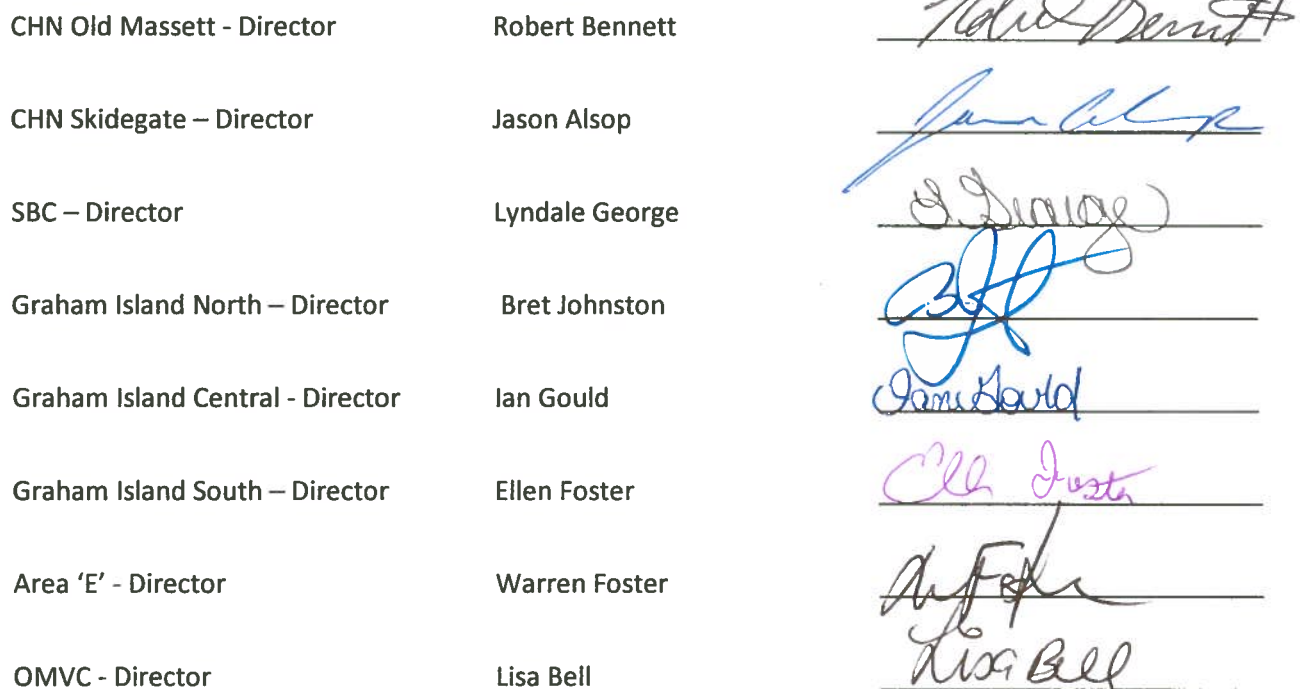 CHN Old Massett - Director Robert Bennett Robert Bennett
CHN Skidegate – Director Jason Alsop
SBC – Director Lyndale George L George
Graham Island North – Director Bret Johnston
Graham Island Central - Director Ian Gould Ian Gould
Graham Island South – Director Ellen Foster Ellen Foster
Area 'E' - Director Warren Foster
OMVC - Director Lisa Bell Lisa Bell